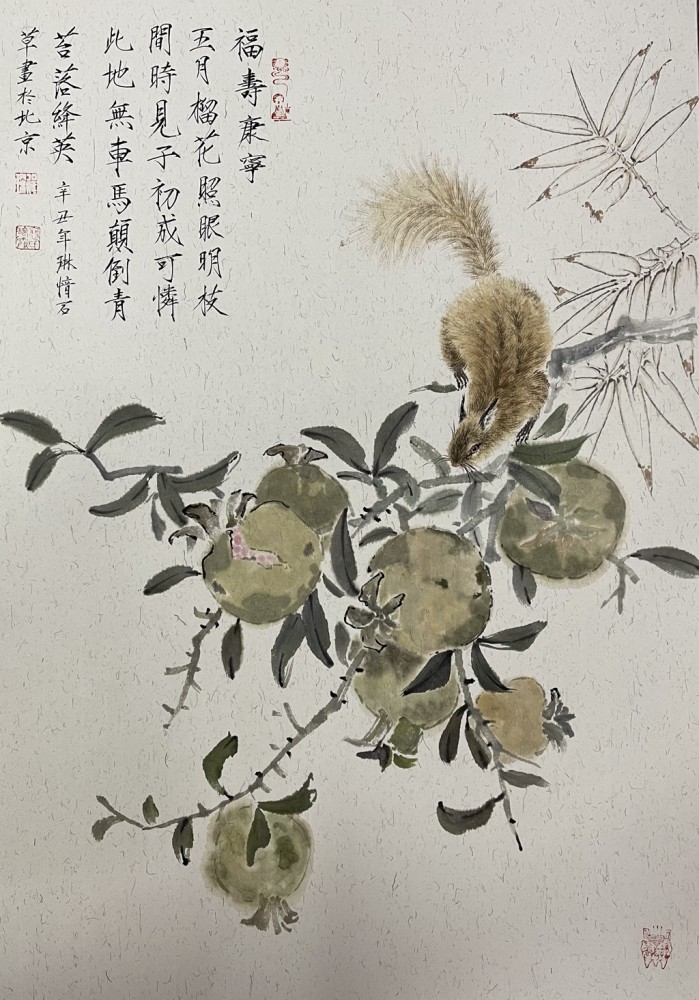 福壽康寧
五月榴花照眼明枝
間時見子初成可憐
此地無車馬顛倒青
苔落絳英 辛丑年琳愔石
草畫於北京